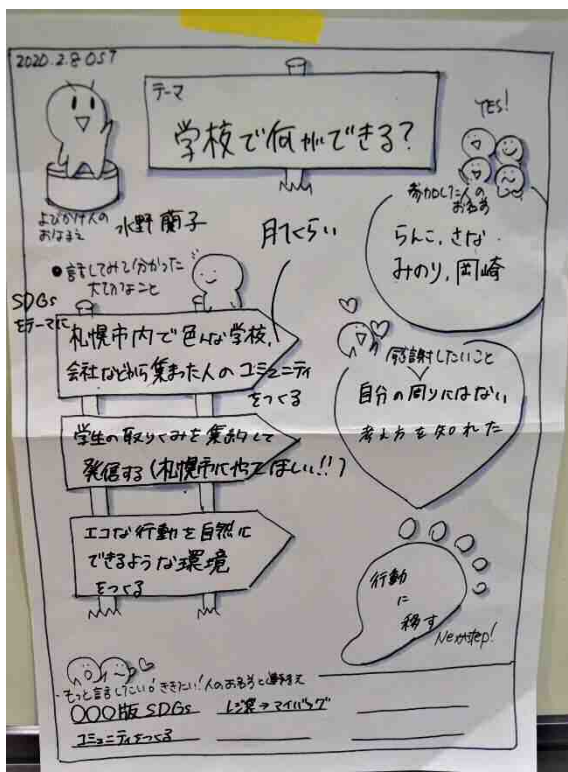 2020.2.8 OST
テーマ
学校で何ができる?
YES!
よびかけ人の
おなまえ
水野蘭子
参加した人の
お名前
らんこ、さな
みのり、岡崎
月1くらい
●話してみて分かった
大切なこと
SDGs
をテーマに
札幌市内で色んな学校、
会社などから集まった人のコミュニティ
をつくる
学生の取りくみを集約して
発信する(札幌市にやってほしい!!)
エコな行動を自然に
できるような環境
をつくる
感謝したいこと
自分の周りにはない
考え方を知れた
行動
に
移す
Next step!
もっと話したい!ききたい!人のお名前と
〇〇〇版SDGs
レジ袋→マイバッグ
コミュニティをつくる